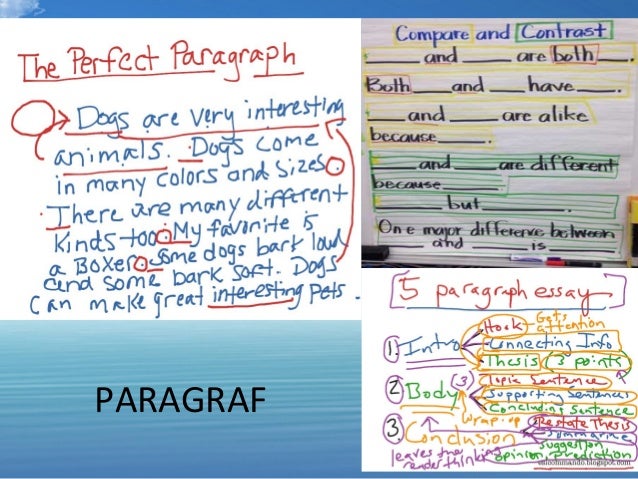 The Perfect Paragraph
Dogs are very interesting
animals. Dogs come
in many colors and sizes.
There are many different
kinds too. My favorite is
a Boxer. Some dogs bark loud
and some bark soft. Dogs
can make great interesting pets.
Compare and Contrast
and are both .
Both and have .
and are alike
because .
and are different
because
but .
One major difference between
and is .
5 paragraph essay
1. Intro
Hook - Gets attention
Connecting Info
Thesis (3 points)
2. Body (3)
Topic Sentence
Supporting Sentences
Concluding Sentence
3. Conclusion
wrap-up
Restate Thesis
Summarize
suggestion
opinion, prediction
leaves the
reader thinking
eslcommando.blogspot.com
PARAGRAF